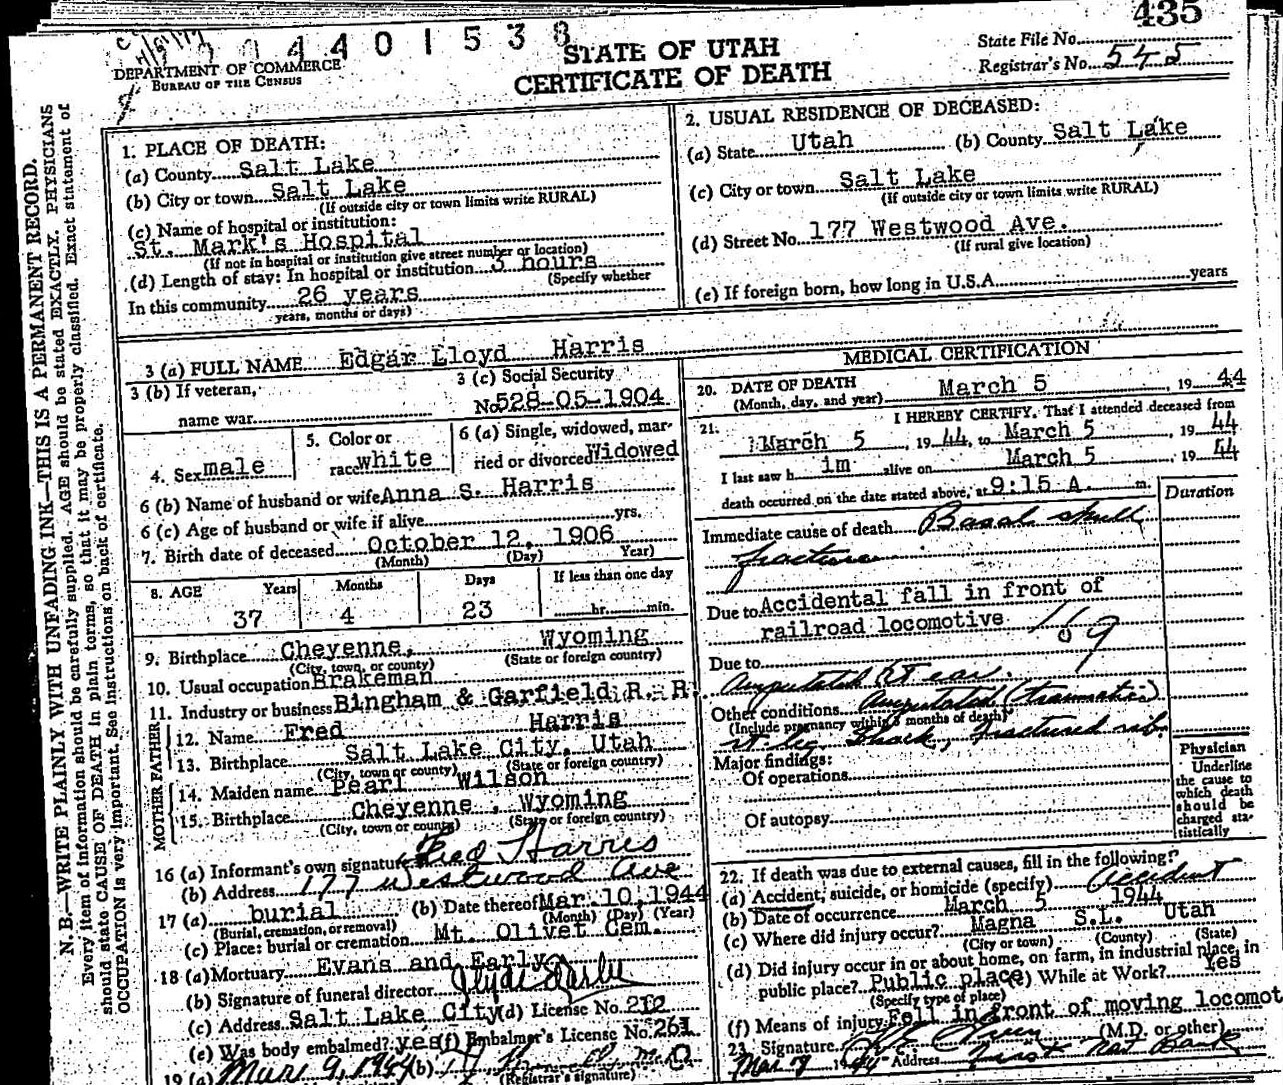 435
4401538
STATE OF UTAH
CERTIFICATE OF DEATH
DEPARTMENT OF COMMERCE
BUREAU OF THE CENSUS
State File No.
Registrar's No. 545
N. B.—WRITE PLAINLY WITH UNFADING INK—THIS IS A PERMANENT RECORD.
Every item of information should be carefully supplied. AGE should be stated EXACTLY. PHYSICIANS
should state CAUSE OF DEATH in plain terms, so that it may be properly classified. Exact statement of
OCCUPATION is very important. See instructions on back of certificate.
1. PLACE OF DEATH:
(a) County Salt Lake
(b) City or town Salt Lake
(If outside city or town limits write RURAL)
(c) Name of hospital or institution:
St. Mark's Hospital
(If not in hospital or institution give street number or location)
(d) Length of stay: In hospital or institution 3 hours
(Specify whether
In this community 26 years
years, months or days)
2. USUAL RESIDENCE OF DECEASED:
(a) State Utah (b) County Salt Lake
(c) City or town Salt Lake
(If outside city or town limits write RURAL)
(d) Street No. 177 Westwood Ave.
(If rural give location)
(e) If foreign born, how long in U.S.A. years
3 (a) FULL NAME Edgar Lloyd Harris
3 (b) If veteran,
name war
3 (c) Social Security
No. 528-05-1904
4. Sex male
5. Color or
race white
6 (a) Single, widowed, mar-
ried or divorced Widowed
6 (b) Name of husband or wife Anna S. Harris
6 (c) Age of husband or wife if alive yrs.
7. Birth date of deceased October 12, 1906
(Month) (Day) Year)
8. AGE Years Months Days If less than one day
37 4 23 hr. min.
9. Birthplace Cheyenne, Wyoming
(City, town, or county) (State or foreign country)
10. Usual occupation Brakeman
11. Industry or business Bingham & Garfield R. R.
MOTHER FATHER
12. Name Fred Harris
13. Birthplace Salt Lake City, Utah
(City, town or county) (State or foreign country)
14. Maiden name Pearl Wilson
15. Birthplace Cheyenne, Wyoming
(City, town or county) (State or foreign country)
16 (a) Informant's own signature Fred Harris
(b) Address 177 Westwood Ave
17 (a) burial (b) Date thereof Mar. 10, 1944
(Burial, cremation, or removal) (Month) (Day) (Year)
(c) Place: burial or cremation Mt. Olivet Cem.
18 (a) Mortuary Evans and Early
(b) Signature of funeral director
(c) Address Salt Lake City (d) License No. 212
(e) Was body embalmed? yes (f) Embalmer's License No. 261
19 (a) Mar 9, 1944 (b)
(Registrar's signature)
MEDICAL CERTIFICATION
20. DATE OF DEATH
(Month, day, and year) March 5, 19 44
21. I HEREBY CERTIFY, That I attended deceased from
March 5, 19 44, to March 5, 19 44
I last saw h im alive on March 5 19 44
death occurred on the date stated above, at 9:15 A. m.
Duration
Immediate cause of death Basal skull
fracture
Due to Accidental fall in front of
railroad locomotive
Due to
Amputated rt ear.
Other conditions Amputated (traumatic)
(Include pregnancy within 3 months of death)
rt leg Shock, Fractured rib
Major findings:
Of operations
Of autopsy
Physician
Underline
the cause to
which death
should be
charged sta-
tistically
22. If death was due to external causes, fill in the following:
(a) Accident, suicide, or homicide (specify) Accident
(b) Date of occurrence March 5 1944
(c) Where did injury occur? Magna S.L. Utah
(City or town) (County) (State)
(d) Did injury occur in or about home, on farm, in industrial place, in
public place? Public place (e) While at Work? Yes
(Specify type of place)
(f) Means of injury Fell in front of moving locomot
23. Signature (M.D. or other)
Mar 9 1944 Address First Nat Bank